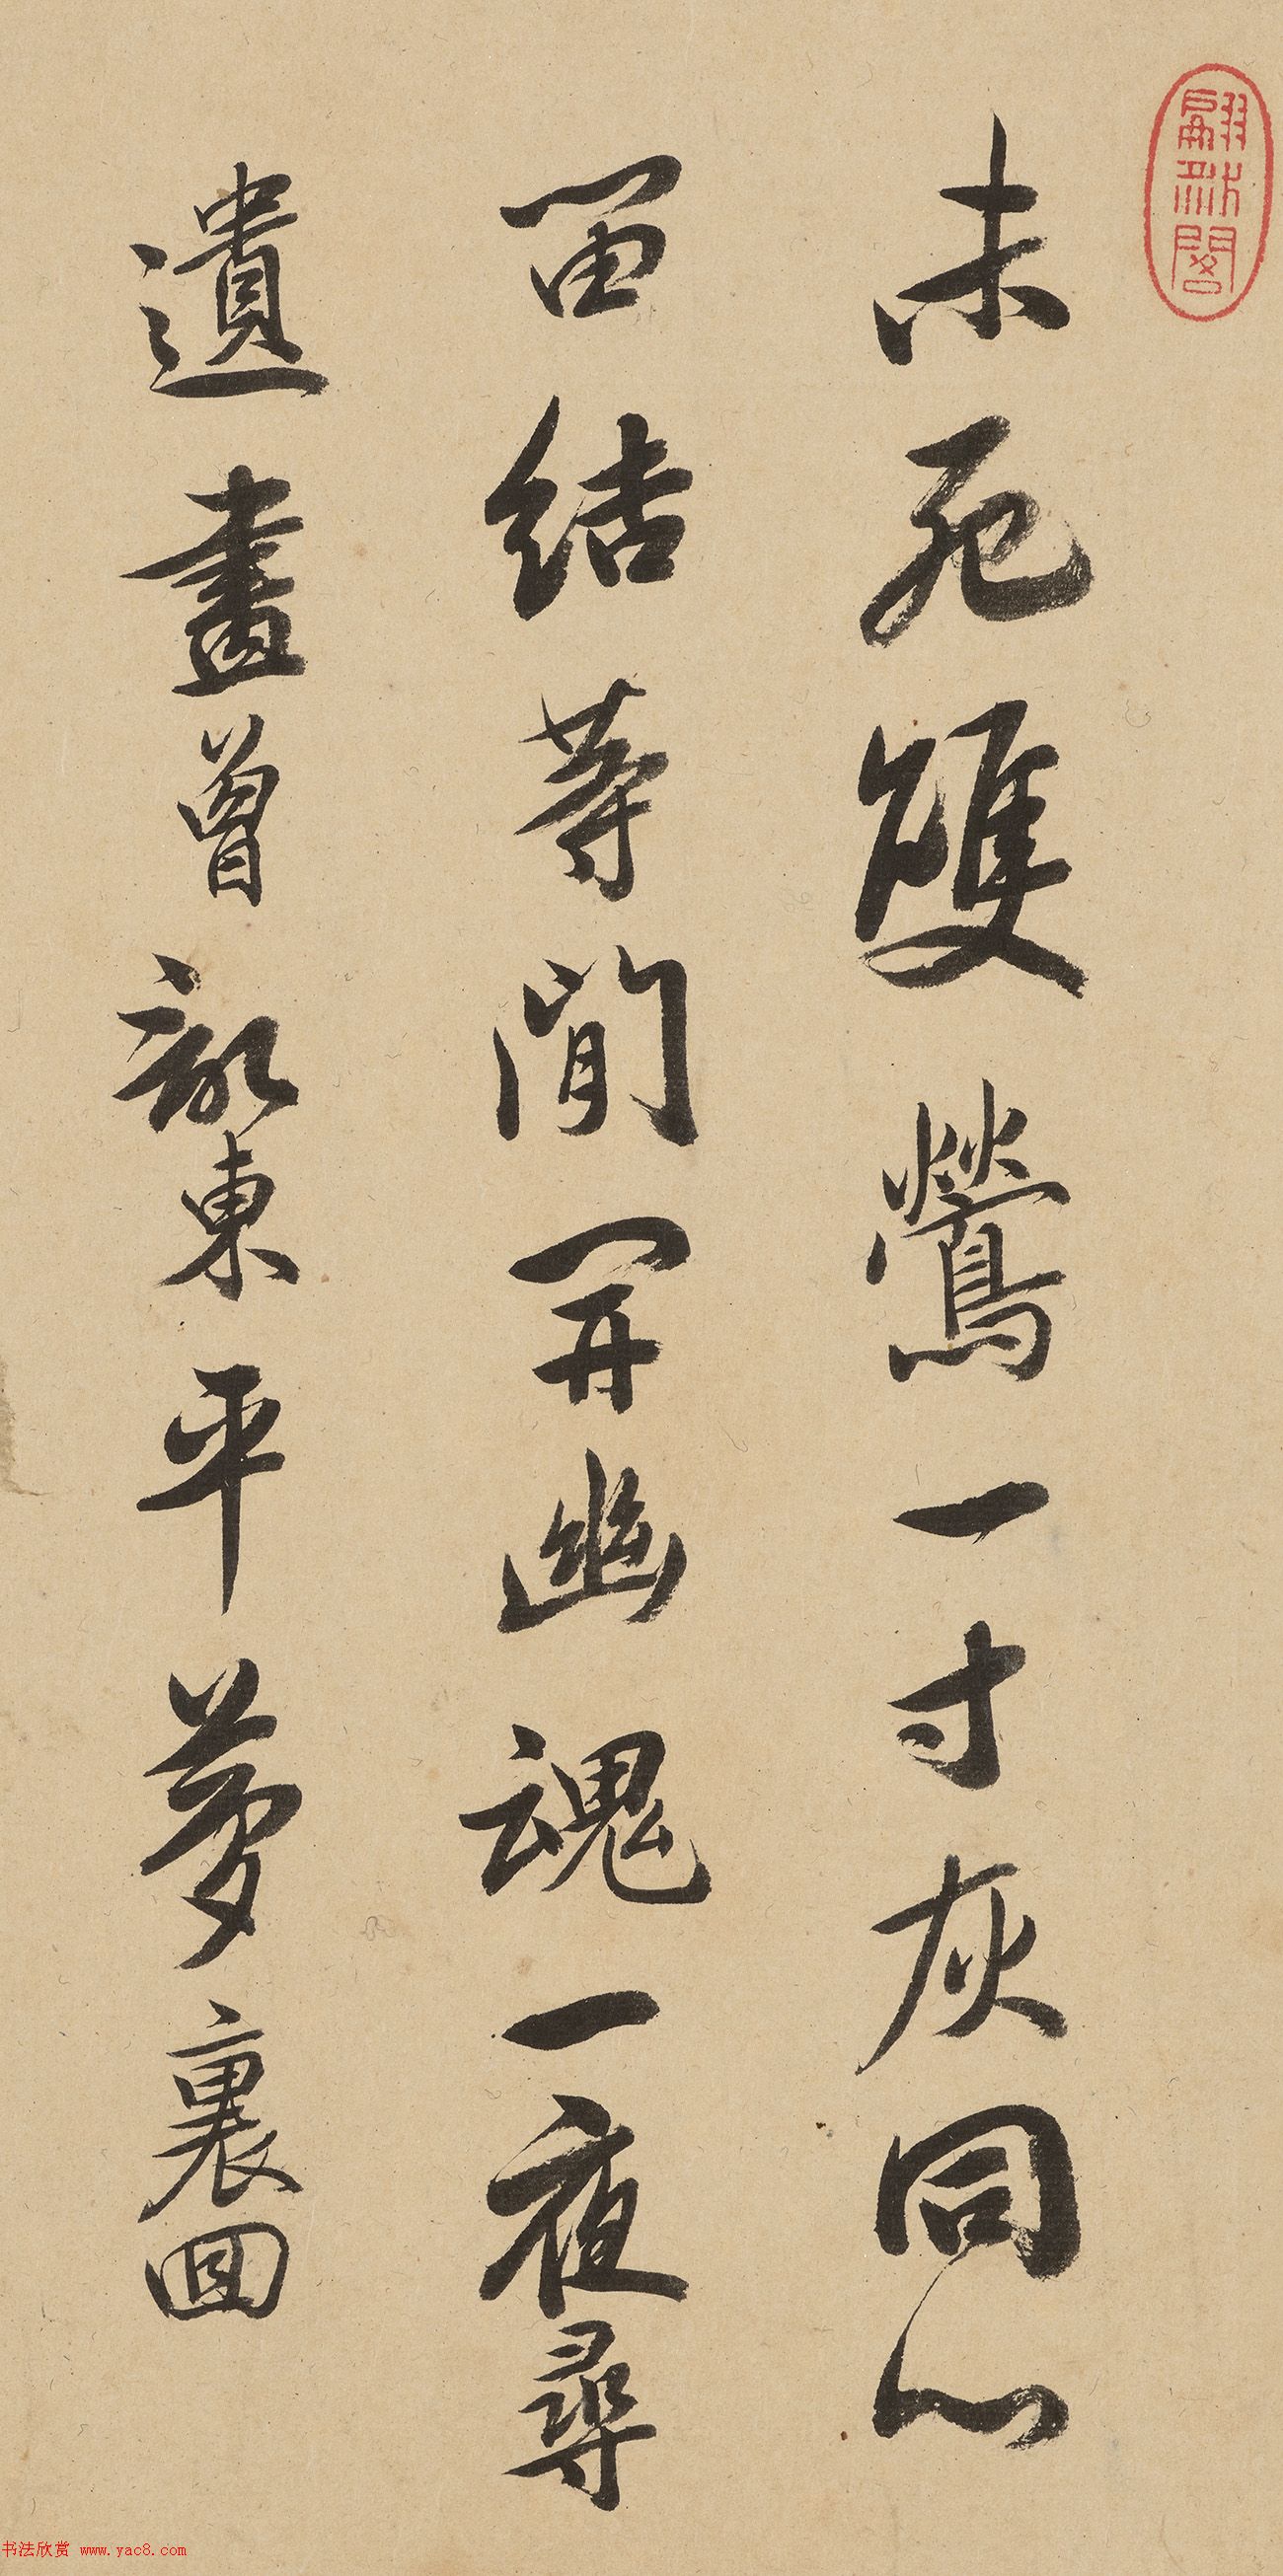 未死雙鶯一寸灰同心
留結等閒開幽魂一夜尋
遺畫曾認東平夢裏回
书法欣赏 www.yac8.com